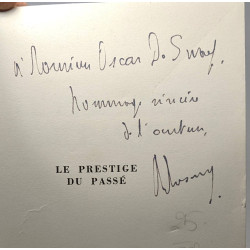 à Monsieur Oscar De Smet,
hommage sincère
de l'auteur,
LE PRESTIGE
DU PASSÉ